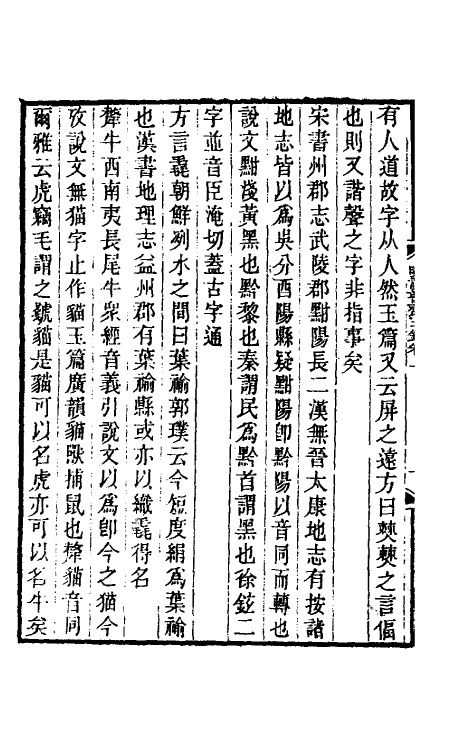 有人道故字从人然玉篇又云屏之遠方曰僰僰之言偪
也則又諧聲之字非指事矣
宋書州郡志武陵郡黚陽長二漢無晉太康地志有按諸
地志皆以爲吳分酉陽縣疑黚陽卽黔陽以音同而轉也
說文黚淺黃黑也黔黎也秦謂民爲黔首謂黑也徐鉉二
字並音臣淹切蓋古字通
方言毳朝鮮列水之間曰葉褕郭璞云今短度絹爲葉褕
也漢書地理志益州郡有葉褕縣或亦以織毳得名
犛牛西南夷長尾牛衆經音義引說文以爲卽今之猫今
攷說文無猫字止作貓玉篇廣韻貓獸捕鼠也犛貓音同
爾雅云虎竊毛謂之虦貓是貓可以名虎亦可以名牛矣